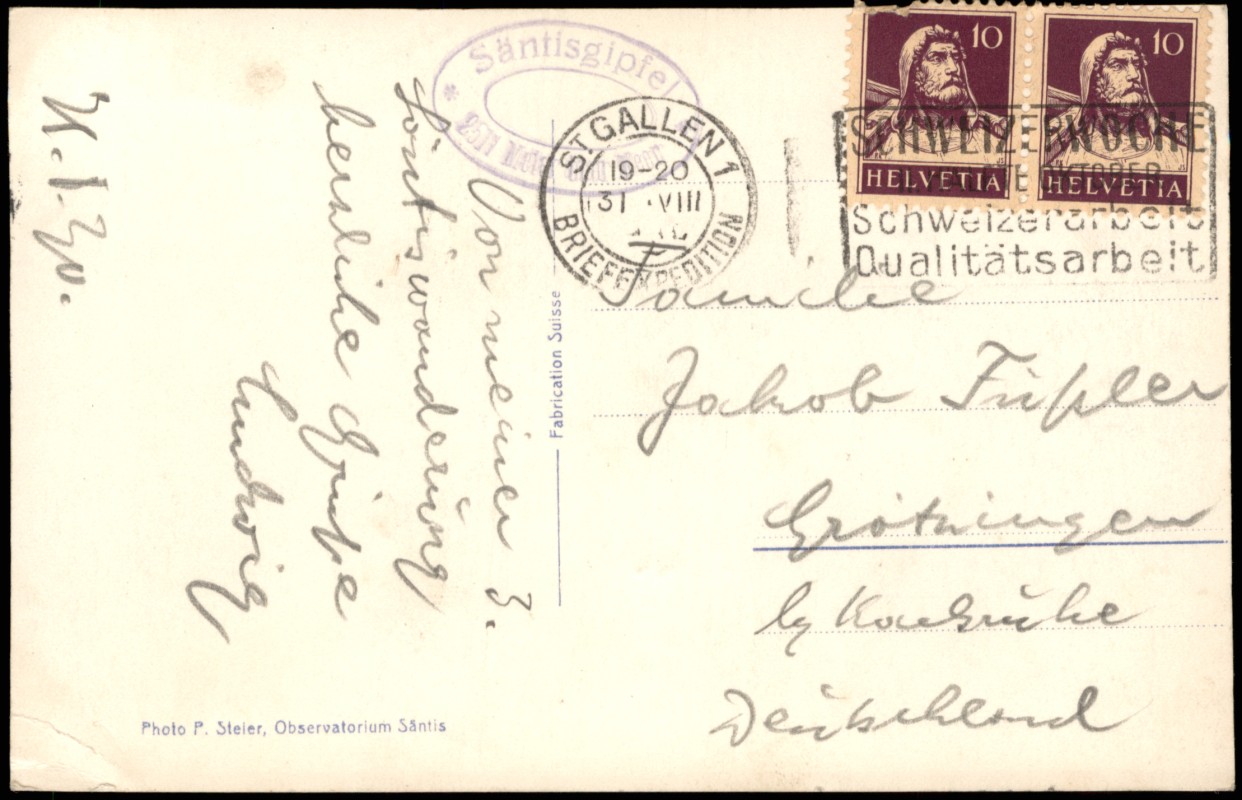 Säntisgipfel
2511 Meter
ST. GALLEN 1
19-20
31 VIII
BRIEFEXPEDITION
10
10
HELVETIA
HELVETIA
SCHWEIZERWOCHE
OKTOBER
Schweizerarbeit
Qualitätsarbeit
Von meiner 3.
Säntiswanderung
herzliche Grüße
Ludwig
Familie
Jakob Füßler
Grötzingen
by Karlsruhe
Deutschland
Fabrication Suisse
Photo P. Steier, Observatorium Säntis